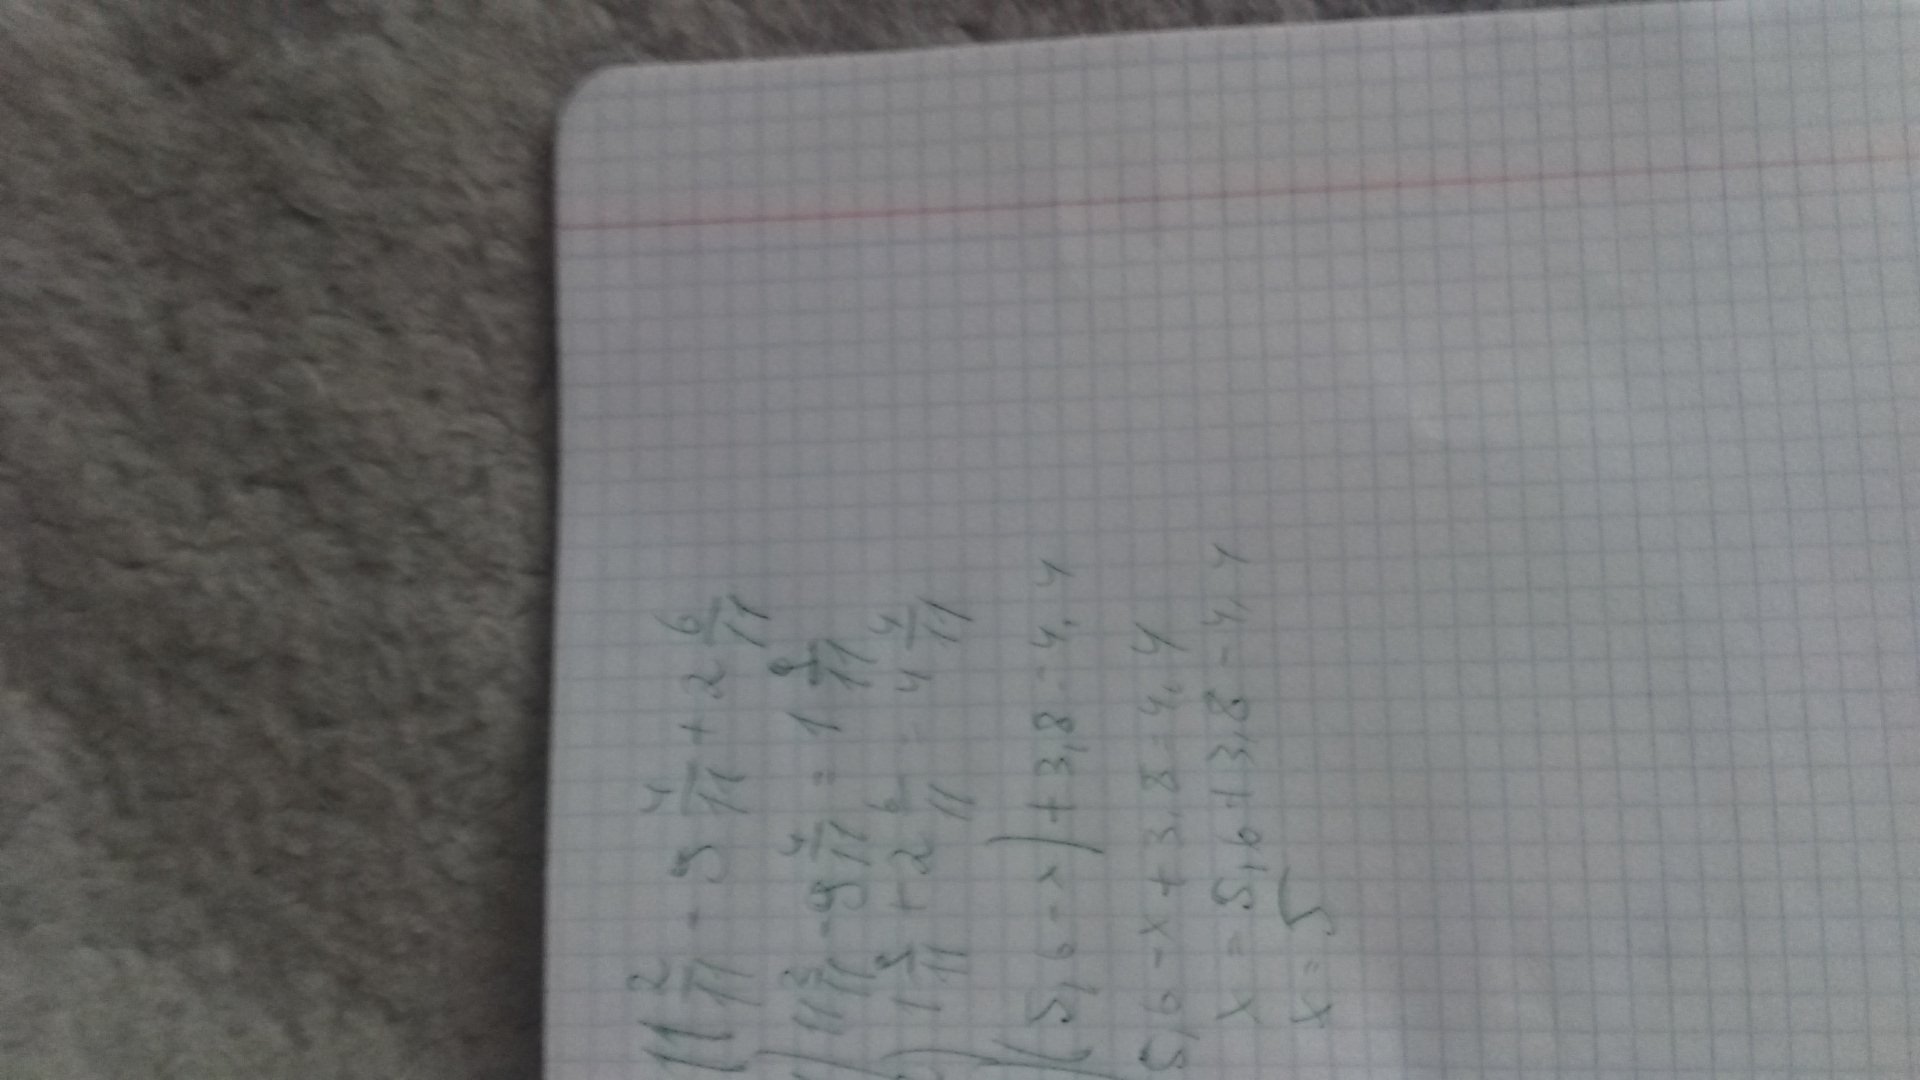 11 2/11 - 9 4/11 + 2 6/11
) 11 2/11 - 9 4/11 = 1 9/11
) 1 9/11 + 2 6/11 = 4 4/11
) (5,6 - x) + 3,8 = 4,4
5,6 - x + 3,8 = 4,4
x = 5,6 + 3,8 - 4,4
x = 5